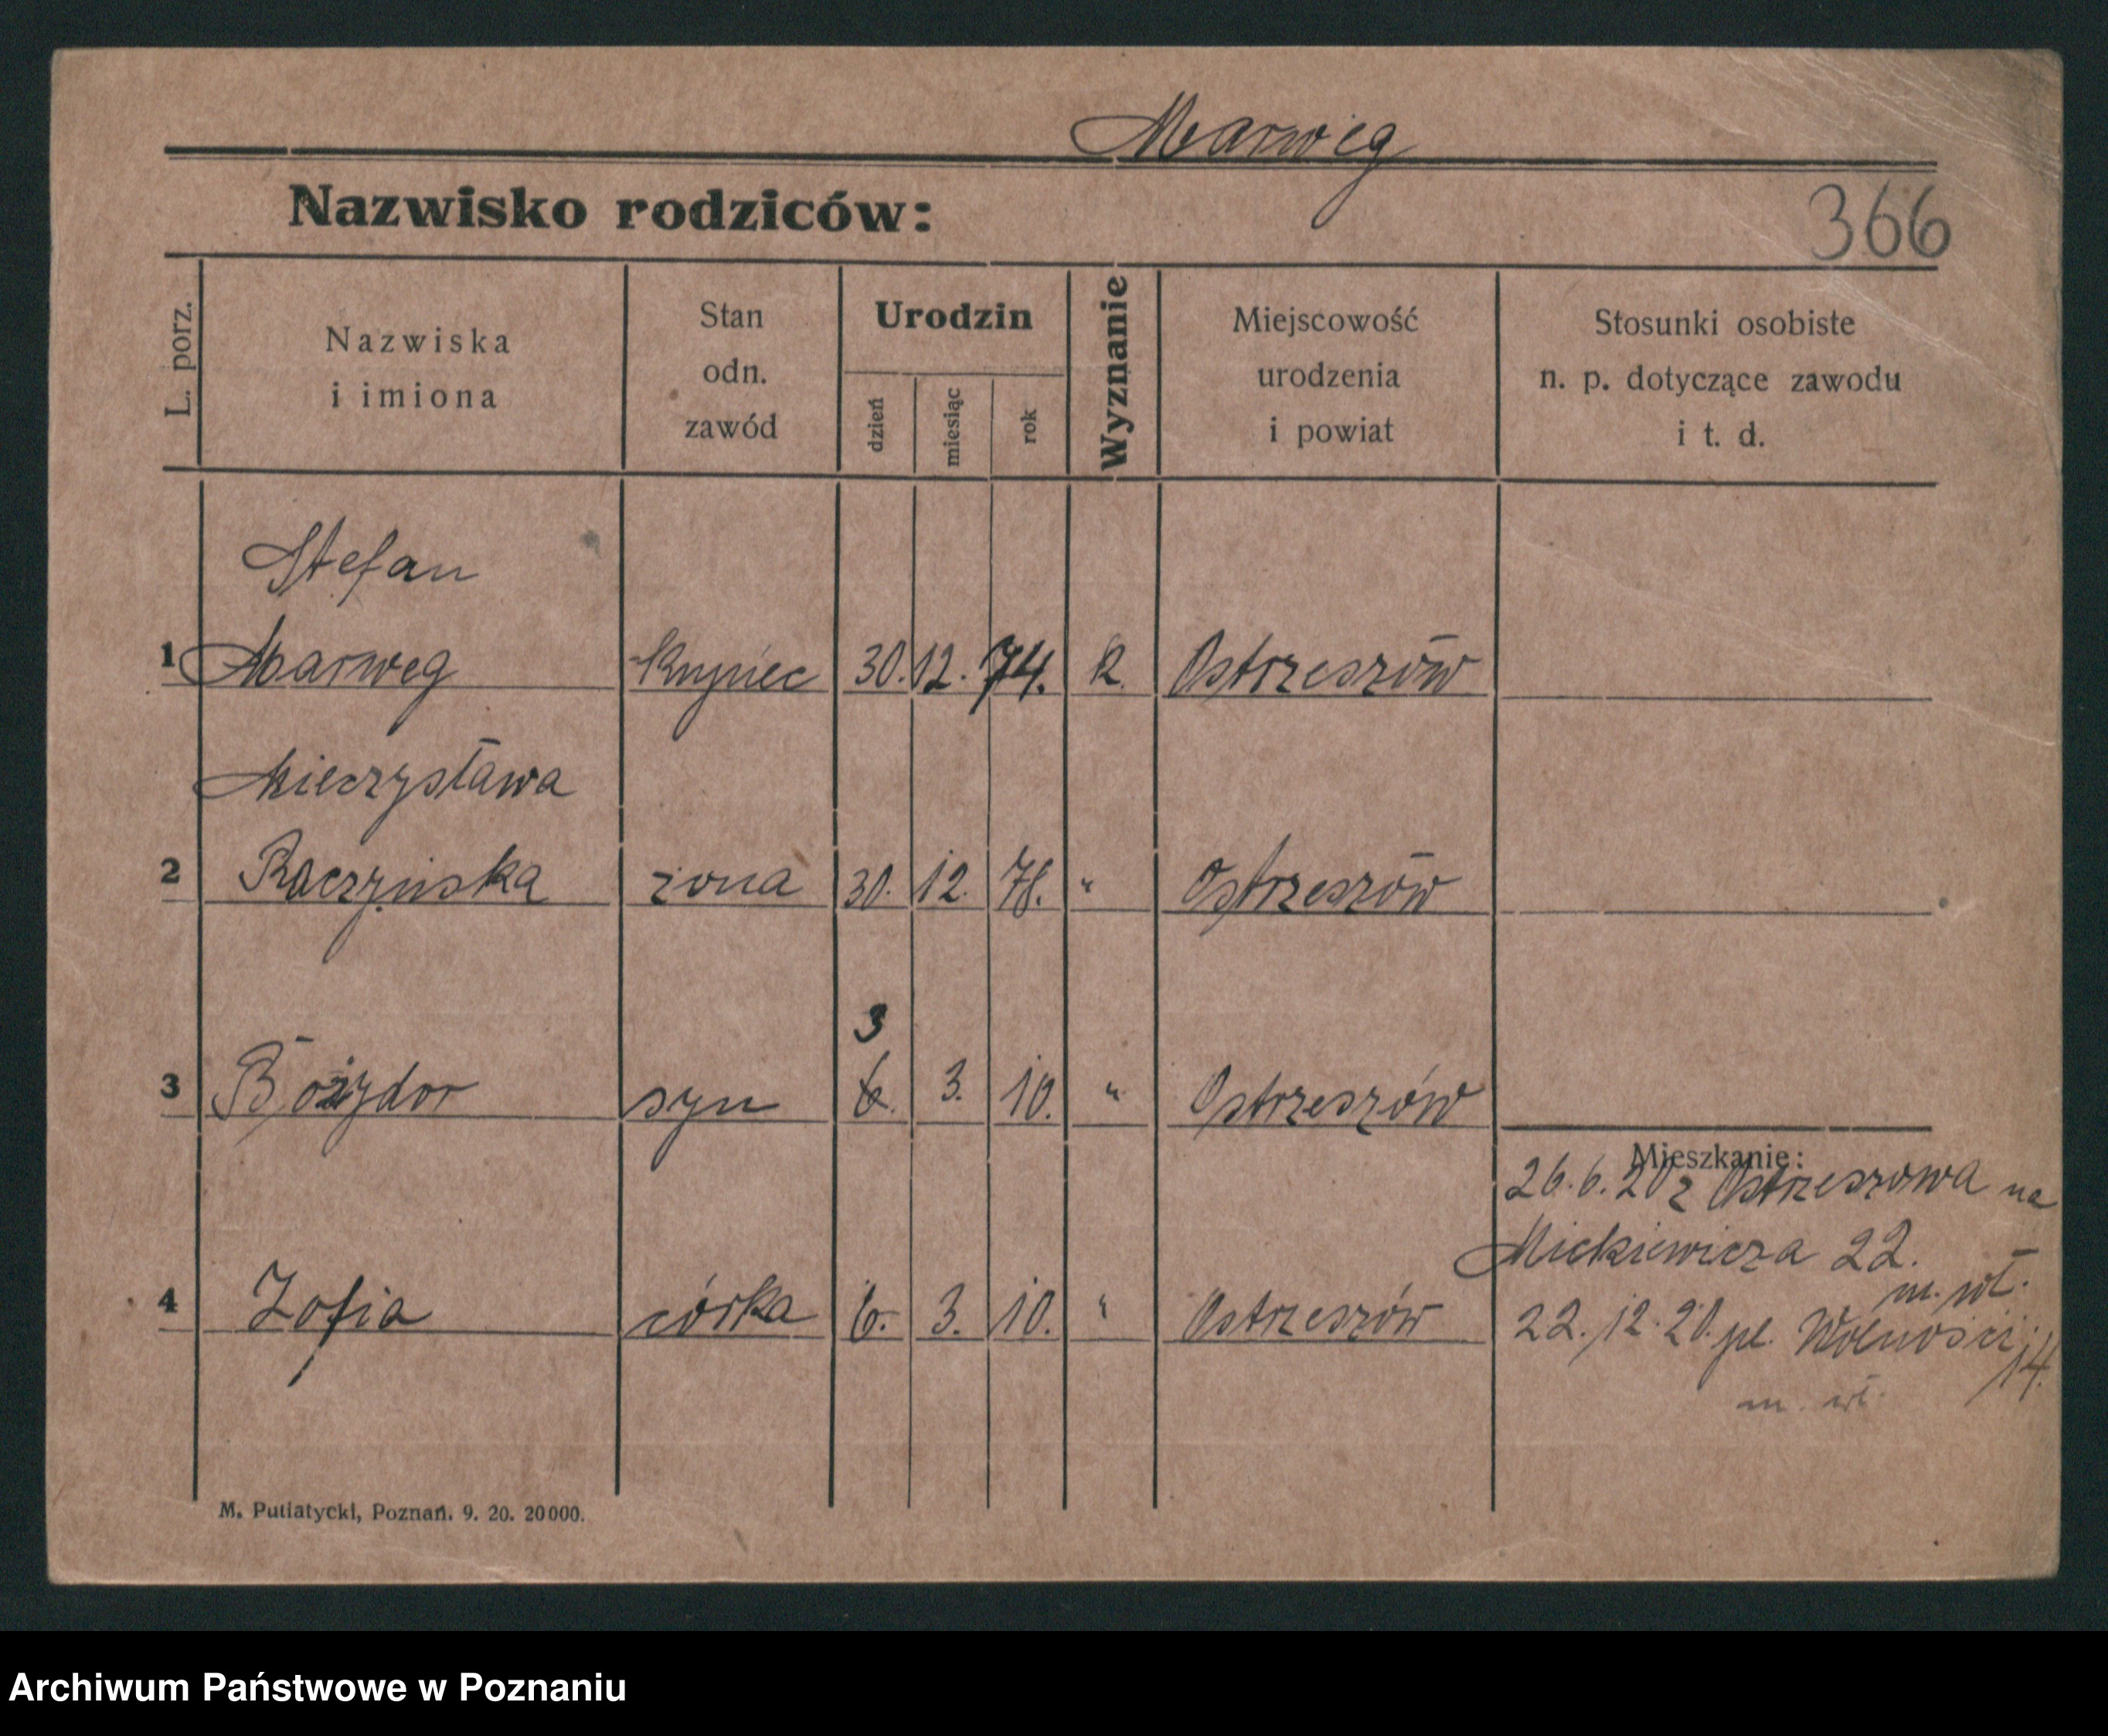 Marweg
Nazwisko rodziców:
366
L. porz.
Nazwiska
i imiona
Stan
odn.
zawód
Urodzin
dzień
miesiąc
rok
Wyznanie
Miejscowość
urodzenia
i powiat
Stosunki osobiste
n. p. dotyczące zawodu
i t. d.
Stefan
1 Marweg kupiec 30. 12. 74. R. Ostrzeszów
Mieczysława
2 Raczyńska żona 30. 12. 78. " Ostrzeszów
3
3 Bożydor syn 6. 3. 10. " Ostrzeszów
Mieszkanie:
26.6.20 z Ostrzeszowa na
Mickiewicza 22.
m. wł.
4 Zofia córka 6. 3. 10. " Ostrzeszów
22.12.20. pl. Wolności 14.
m. wł.
M. Putiatycki, Poznań. 9. 20. 20000.
Archiwum Państwowe w Poznaniu